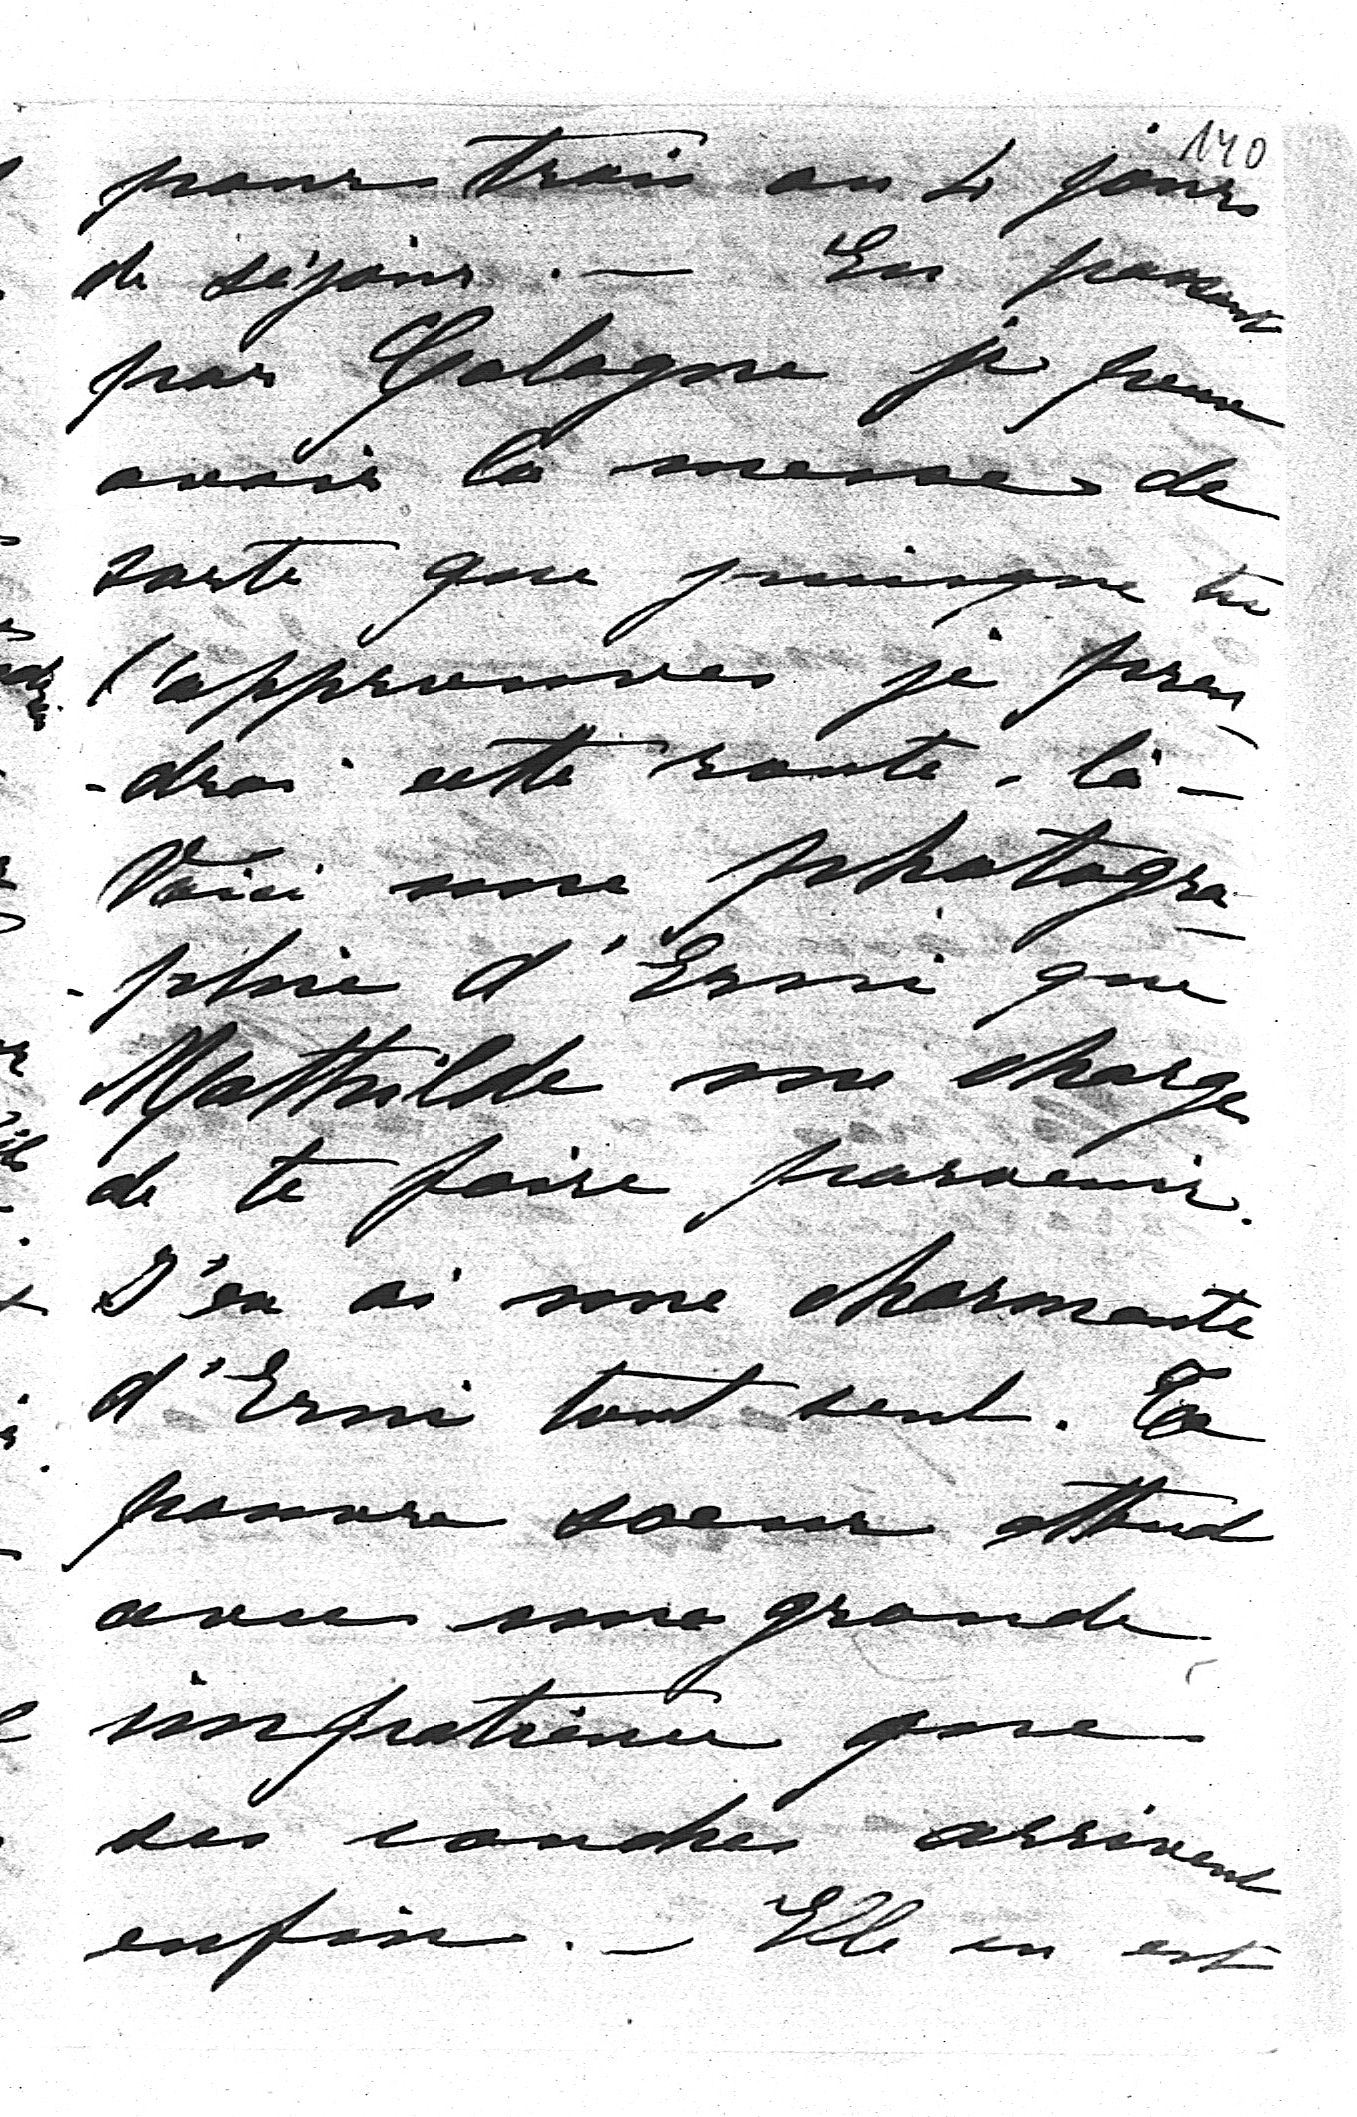 140
pour trois ou 4 jours
de séjour. — En passant
par Cologne je peux
avoir la messe de
sorte que puisque tu
l'approuves je pren
-drai cette route-là —
Voici une photogra-
-phie d'Erni que
Mathilde me charge
de te faire parvenir.
J'en ai une charmante
d'Erni tout seul. Ta
pauvre soeur attend
avec une grande
impatience que
ses couches arrivent
enfin. — Elle en est